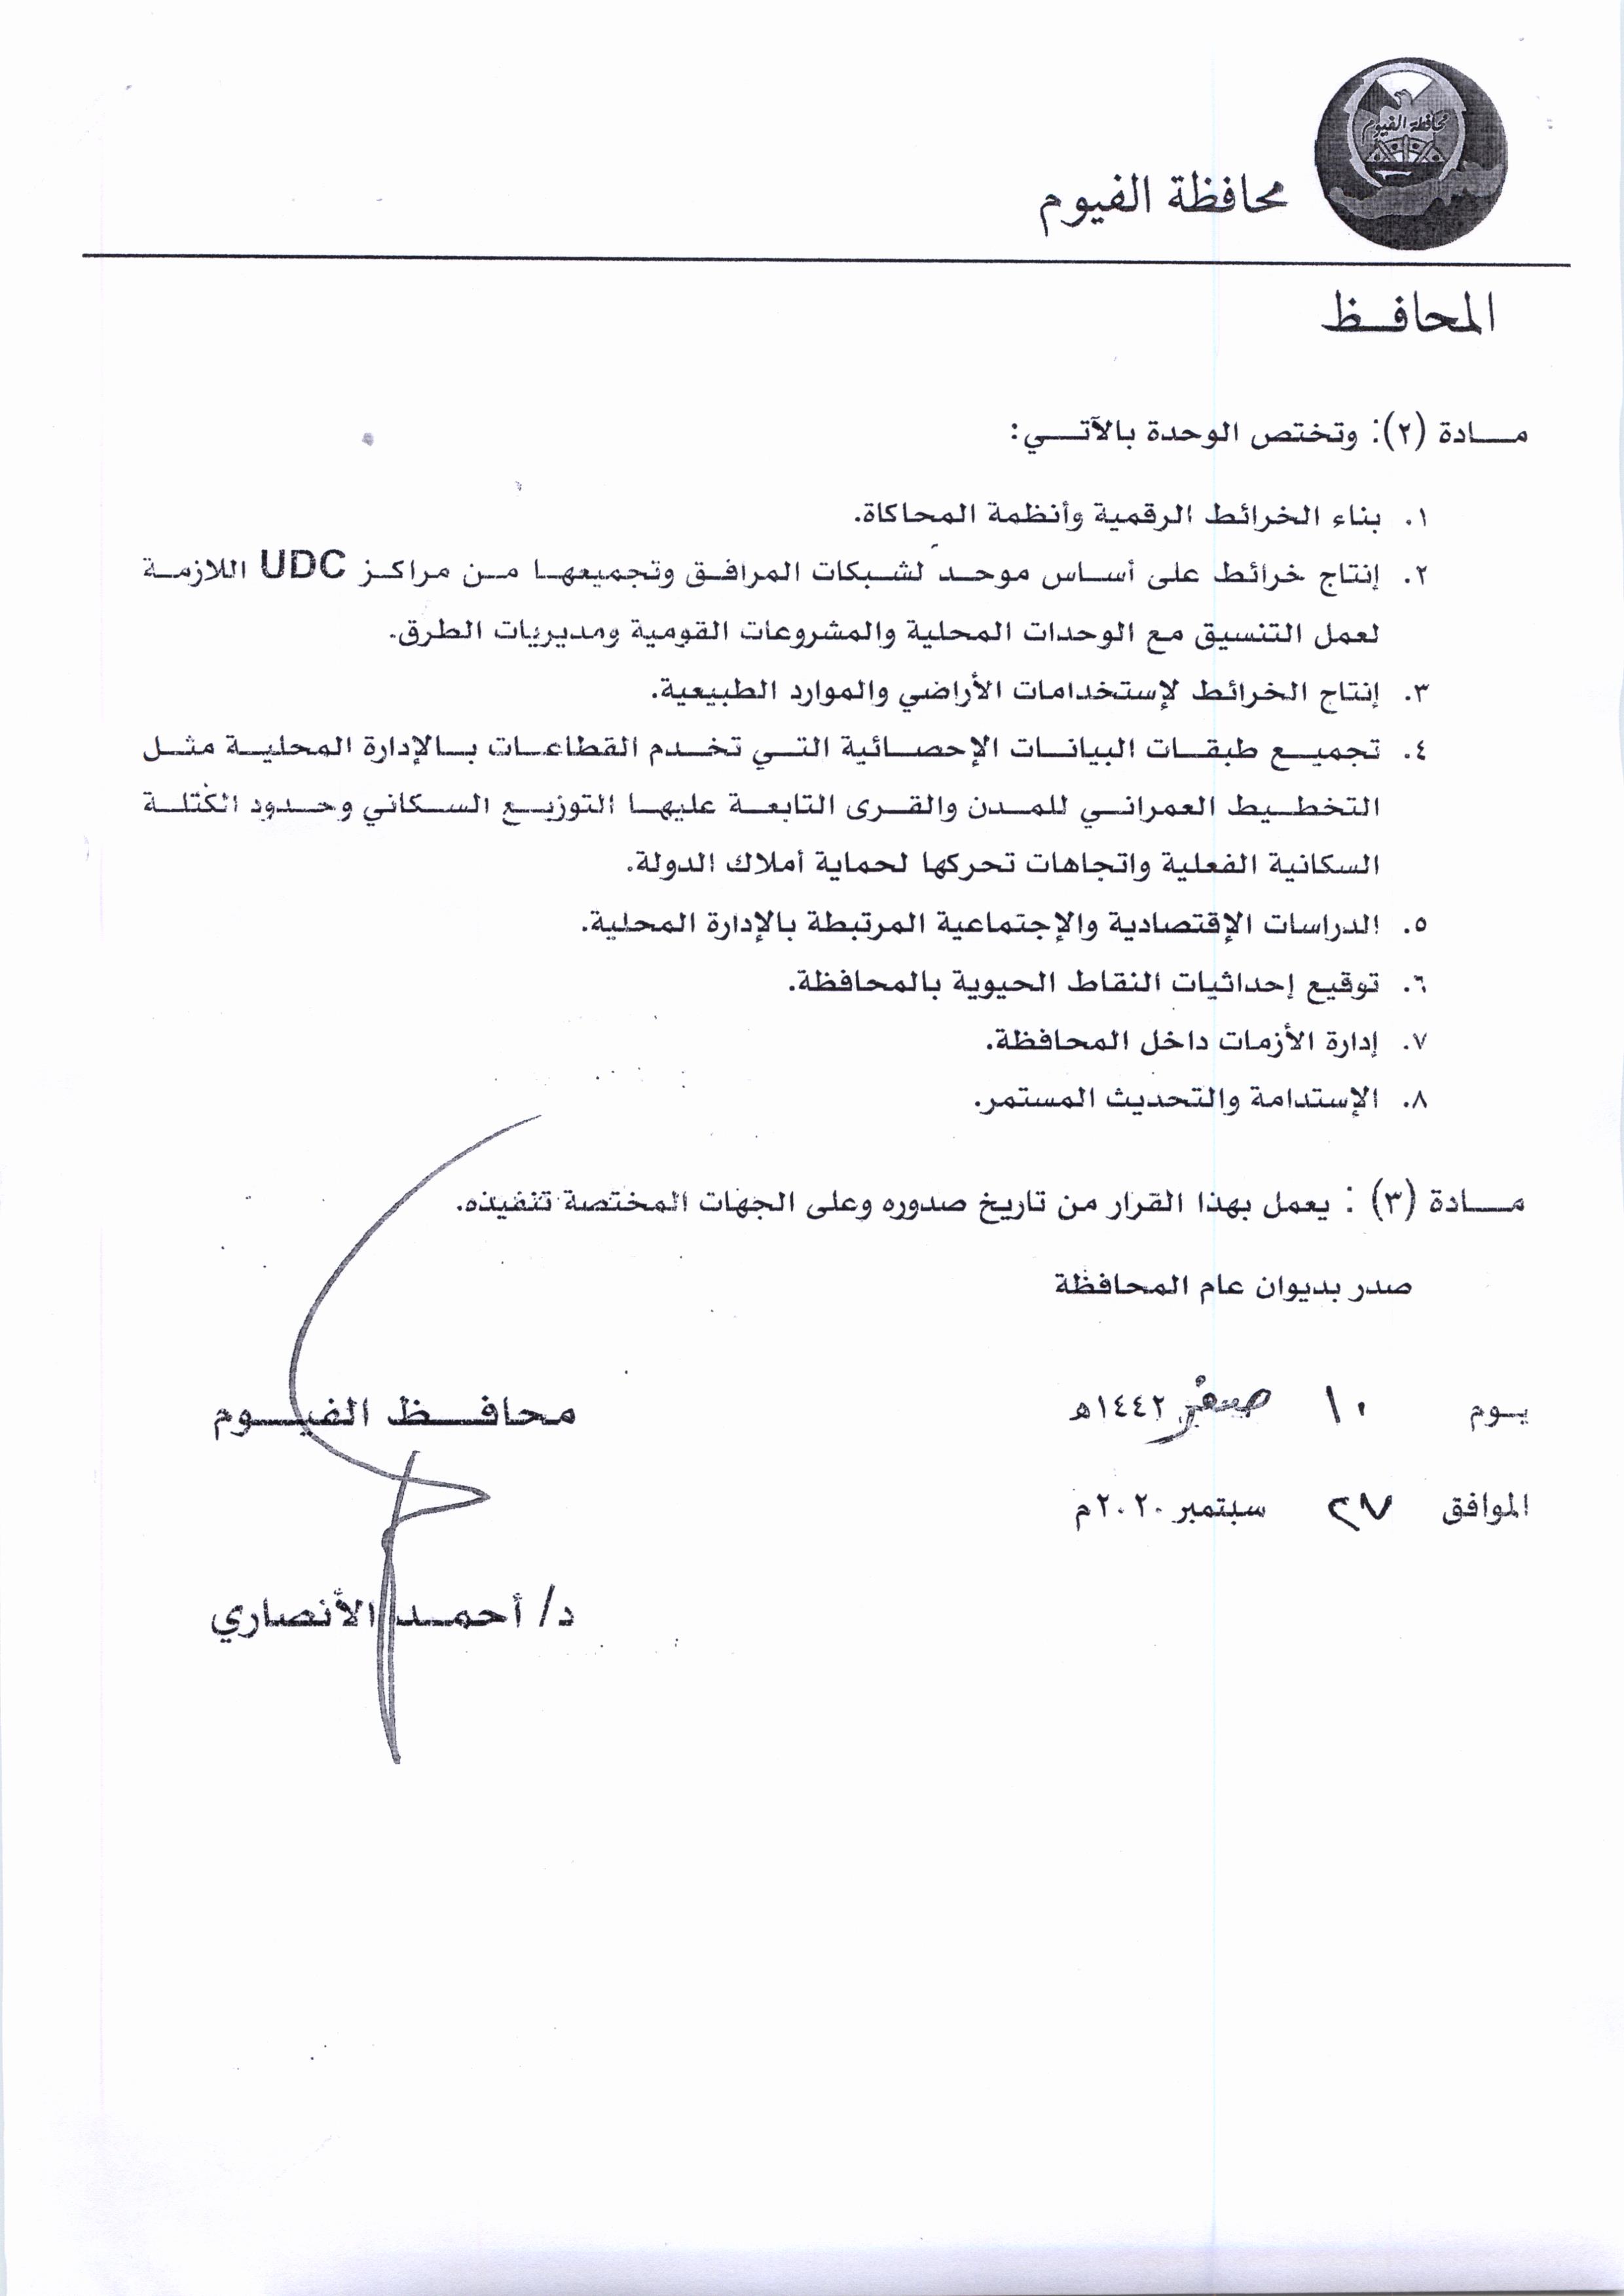 محافظة الفيوم
محافظة الفيوم
المحافظ
مادة (٢): وتختص الوحدة بالآتي:
١. بناء الخرائط الرقمية وأنظمة المحاكاة.
٢. إنتاج خرائط على أساس موحد لشبكات المرافق وتجميعها من مراكز UDC اللازمة
لعمل التنسيق مع الوحدات المحلية والمشروعات القومية ومديريات الطرق.
٣. إنتاج الخرائط لإستخدامات الأراضي والموارد الطبيعية.
٤. تجميع طبقات البيانات الإحصائية التي تخدم القطاعات بالإدارة المحلية مثل
التخطيط العمراني للمدن والقرى التابعة عليها التوزيع السكاني وحدود الكتلة
السكانية الفعلية واتجاهات تحركها لحماية أملاك الدولة.
٥. الدراسات الإقتصادية والإجتماعية المرتبطة بالإدارة المحلية.
٦. توقيع إحداثيات النقاط الحيوية بالمحافظة.
٧. إدارة الأزمات داخل المحافظة.
٨. الإستدامة والتحديث المستمر.
مادة (٣) : يعمل بهذا القرار من تاريخ صدوره وعلى الجهات المختصة تنفيذه.
صدر بديوان عام المحافظة
يوم ١٠ صفر ١٤٤٢هـ
الموافق ٢٧ سبتمبر ٢٠٢٠م
محافظ الفيوم
د/ أحمد الأنصاري